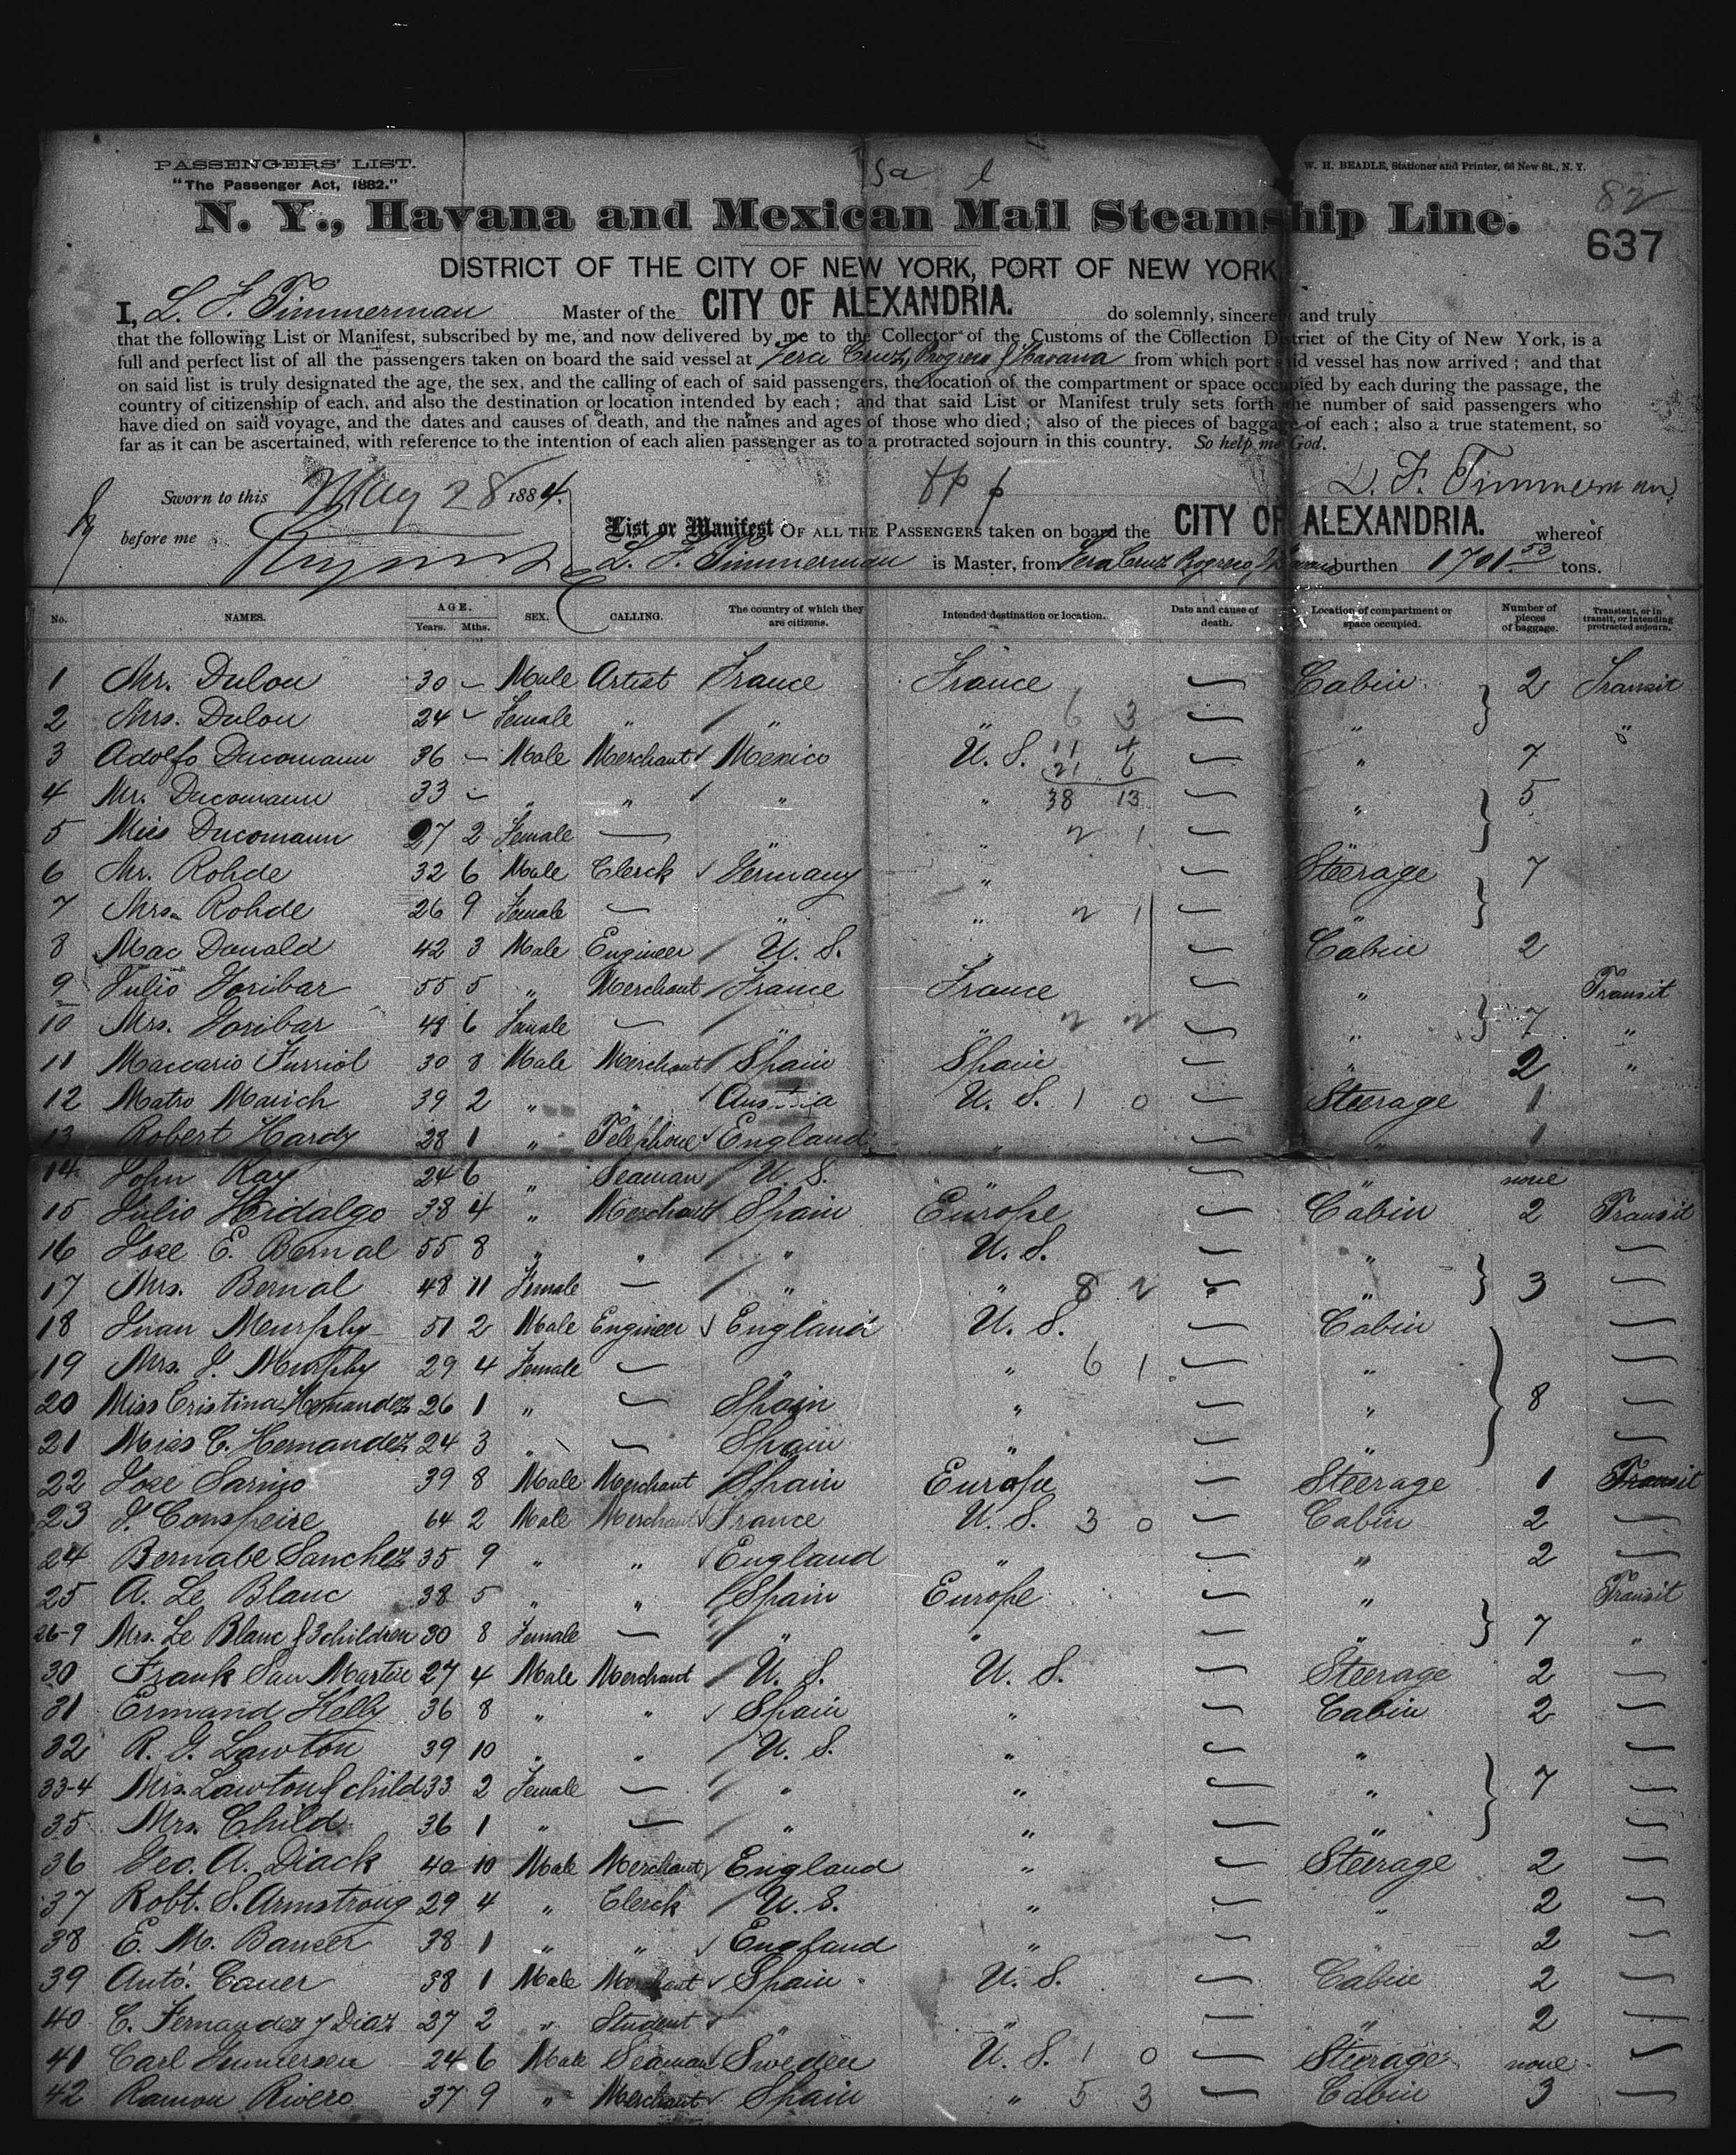 PASSENGERS' LIST.
"The Passenger Act, 1882."
W. H. BEADLE, Stationer and Printer, 66 New St., N. Y.
82
N. Y., Havana and Mexican Mail Steamship Line.
637
DISTRICT OF THE CITY OF NEW YORK, PORT OF NEW YORK
I, L. F. Timmerman Master of the CITY OF ALEXANDRIA. do solemnly, sincerely and truly
that the following List or Manifest, subscribed by me, and now delivered by me to the Collector of the Customs of the Collection District of the City of New York, is a
full and perfect list of all the passengers taken on board the said vessel at Vera Cruz, Progreso & Havana from which port said vessel has now arrived; and that
on said list is truly designated the age, the sex, and the calling of each of said passengers, the location of the compartment or space occupied by each during the passage, the
country of citizenship of each, and also the destination or location intended by each; and that said List or Manifest truly sets forth the number of said passengers who
have died on said voyage, and the dates and causes of death, and the names and ages of those who died; also of the pieces of baggage of each; also a true statement, so
far as it can be ascertained, with reference to the intention of each alien passenger as to a protracted sojourn in this country. So help me God.
L. F. Timmerman
Sworn to this May 28 1884.
before me
List or Manifest OF ALL THE PASSENGERS taken on board the CITY OF ALEXANDRIA. whereof
L. F. Timmerman is Master, from Vera Cruz Progreso & Havana burthen 1701.53 tons.
No. NAMES. AGE. Years. Mths. SEX. CALLING. The country of which they are citizens. Intended destination or location. Date and cause of death. Location of compartment or space occupied. Number of pieces of baggage. Transient, or in transit, or intending protracted sojourn.
1 Mr. Dulou 30 – Male Artist France France — Cabin 2 Transit
2 Mrs. Dulou 24 – Female " " " 6 3 — " "
3 Adolfo Ducomann 36 – Male Merchant Mexico U. S. 11 4 21 6 — " 7
4 Mr. Ducomann 33 – " " " " 38 13 — " 5
5 Miss Ducomann 27 2 Female — " " 2 1 — "
6 Mr. Rohde 32 6 Male Clerck Germany " — Steerage 7
7 Mrs. Rohde 26 9 Female — " " 2 1 — "
8 Mac Donald 42 3 Male Engineer U. S. — Cabin 2
9 Julio Goribar 55 5 " Merchant France France — " Transit
10 Mrs. Goribar 48 6 Female — " " 2 2 — " 7 "
11 Maccario Furriol 30 8 Male Merchant Spain Spain — " 2 "
12 Matro Marich 39 2 " " Austria U. S. 1 0 — Steerage 1
13 Robert Hardy 28 1 " Telephone England " — " 1
14 John Ray 24 6 " Seaman U. S. " — " none
15 Julio Hidalgo 38 4 " Merchant Spain Europe — Cabin 2 Transit
16 Jose E. Bernal 55 8 " " " U. S. — " —
17 Mrs. Bernal 48 11 Female — " " 8 2 — " 3 —
18 Juan Murphy 51 2 Male Engineer England U. S. — Cabin —
19 Mrs. J. Murphy 29 4 Female — " " 6 1 — " —
20 Miss Cristina Hernandez 26 1 " — Spain " — " 8 —
21 Miss C. Hernandez 24 3 " — Spain " — " —
22 Jose Sarnio 39 8 Male Merchant Spain Europe — Steerage 1 Transit
23 J. Conspeire 64 2 Male Merchant France U. S. 3 0 — Cabin 2 —
24 Bernabe Sanchez 35 9 " " England " — " 2 —
25 A. Le Blanc 38 5 " " Spain Europe — " Transit
26-9 Mrs. Le Blanc & 3 children 30 8 Female — " " — " 7 "
30 Frank San Martin 27 4 Male Merchant U. S. U. S. — Steerage 2 —
31 Ermand Kelly 36 8 " " Spain " — Cabin 2 —
32 R. G. Lawton 39 10 " " U. S. " — " —
33-4 Mrs. Lawton & child 33 2 Female — " " — " 7 —
35 Mrs. Child 36 1 " — " " — " —
36 Geo. A. Diack 40 10 Male Merchant England " — Steerage 2 —
37 Robt. S. Armstrong 29 4 " Clerck U. S. " — " 2 —
38 E. M. Banser 38 1 " " England " — " 2 —
39 Anto. Cauer 38 1 Male Merchant Spain U. S. — Cabin 2 —
40 C. Fernandez y Diaz 27 2 " Student " " — " 2 —
41 Carl Gunnersen 24 6 Male Seaman Sweden U. S. 1 0 — Steerage none —
42 Ramon Rivero 37 9 " Merchant Spain " 5 3 — Cabin 3 —